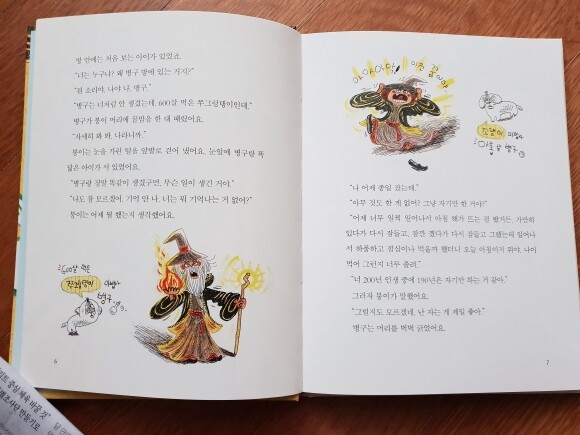 방 안에는 처음 보는 아이가 있었죠.
"너는 누구냐? 왜 병구 방에 있는 거지?"
"뭔 소리야, 나야 나, 병구."
"병구는 너처럼 안 생겼는데. 600살 먹은 쭈그렁탱이인데."
병구가 붕이 머리에 꿀밤을 한 대 때렸어요.
"자세히 봐 봐, 나라니까."
붕이는 눈을 가린 털을 앞발로 걷어 냈어요. 눈앞에 병구랑 똑
닮은 아이가 서 있었어요.
"병구랑 정말 똑같이 생겼구먼, 무슨 일이 생긴 거야."
"나도 잘 모르겠어, 기억 안 나. 너는 뭐 기억나는 거 없어?"
붕이는 어제 뭘 했는지 생각했어요.
600살 먹은
마법사
병구
6
아 아 아 악!
마법사
"나 어제 종일 잤는데."
"아무 것도 한 게 없어? 그냥 자기만 한 거야?"
"어제 너무 일찍 일어나서 아침 해가 뜨는 걸 봤거든, 가만히
있다가 다시 잠들고, 잠깐 깼다가 다시 잠들고 그랬는데 일어나
서 하품하고 점심이나 먹을까 했더니 오늘 아침이지 뭐야. 나이
먹어 그런지 너무 졸려."
"너 200년 인생 중에 190년은 자기만 하는 거 같아."
그러자 붕이가 말했어요.
"그럴지도 모르겠네. 난 자는 게 제일 좋아."
병구는 머리를 벅벅 긁었어요.
7